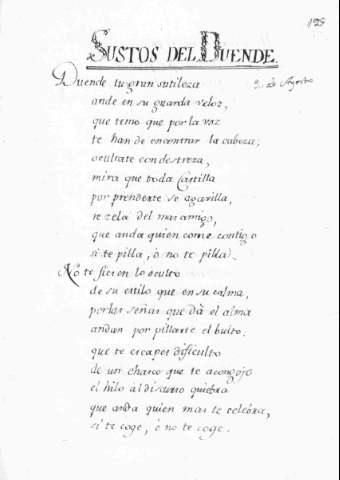 SUSTOS DEL DUENDE.
Duende tu gran sutileza
ande en su guarda veloz,
que temo que por la vaz
te han de encontrar la cabeza;
ocultate con destreza,
mira que toda Castilla
por prenderte se agavilla,
rezela del mas amigo,
que anda quien come contigo
si te pilla, ò no te pilla.
No te fies en lo oculto
de su estilo que en su calma,
por las señas que dà el alma
andan por pillarte el bulto:
que te escapes dificulto
de un charco que te acongoje
el hilo al discurso
que anda quien mas te celebra,
si te coge, ò no te coge.